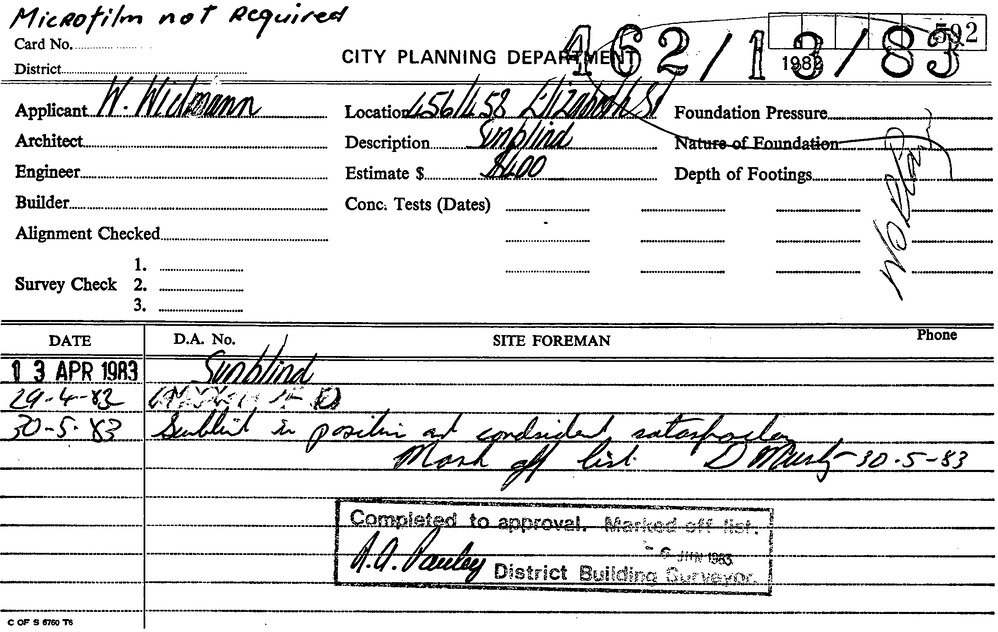 Microfilm not Required
Card No.
District
CITY PLANNING DEPARTMENT
462/13/83
592
1982
Applicant W. Widmann
Location 456/458 Elizabeth St
Foundation Pressure
Architect
Description Sunblind
Nature of Foundation
Engineer
Estimate $ $400
Depth of Footings
Builder
Conc. Tests (Dates)
Alignment Checked
No Plan
Survey Check
1.
2.
3.
DATE D.A. No. SITE FOREMAN Phone
13 APR 1983 Sunblind
29-4-83
30-5-83 Sunblind in position and considered satisfactory
Mark off list. D 30-5-83
Completed to approval. Marked off list.
- 6 JUN 1983
R.A. Pauley District Building Surveyor.
C OF S 6760 T6